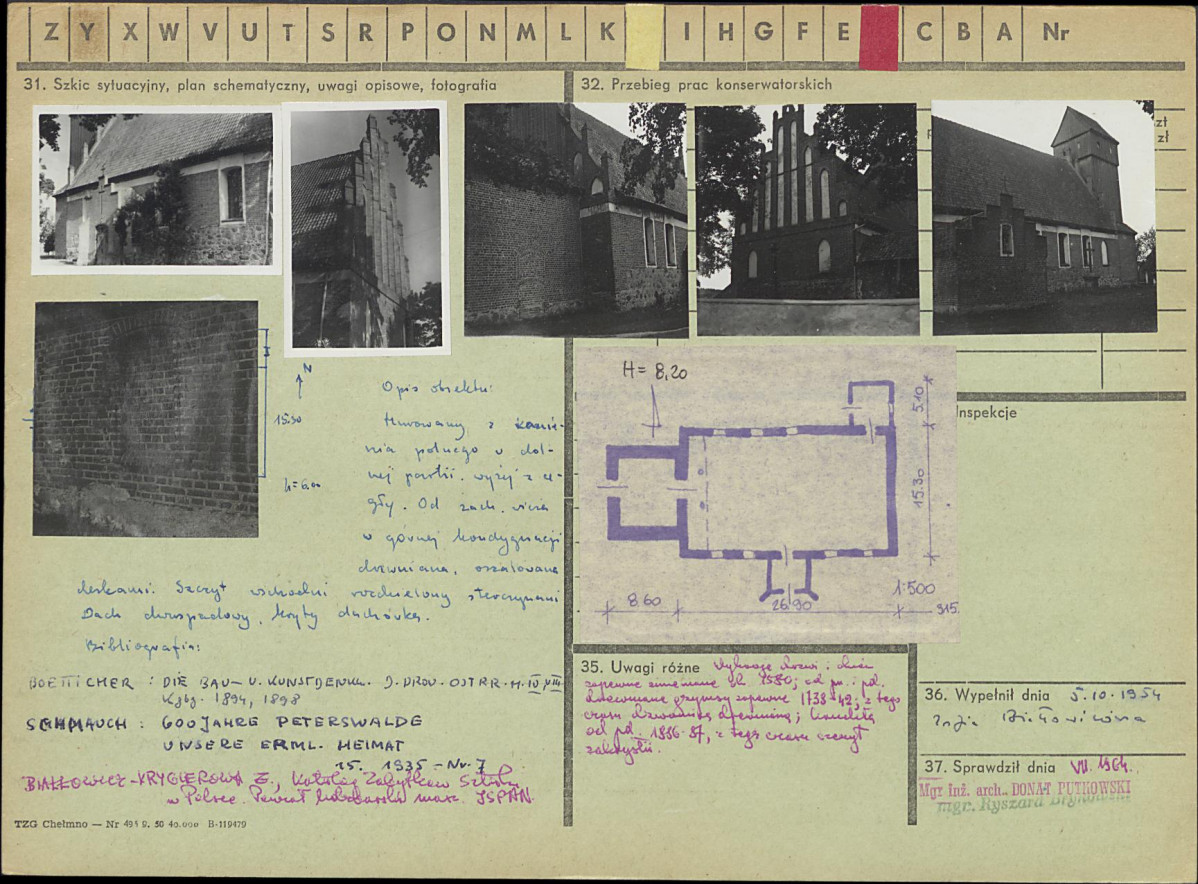 Z Y X W V U T S R P O N M L K I H G F E C B A Nr
31. Szkic sytuacyjny, plan schematyczny, uwagi opisowe, fotografia
32. Przebieg prac konserwatorskich
zł
zł
Inspekcje
N
15.30
h=6.00
Opis obiektu:
Murowany, z kamie-
nia polnego w dol-
nej partii, wyżej z ce-
gły. Od zach. wieża
w górnej kondygnacji
drewniana, oszalowana
deskami. Szczyt wschodni rozdzielony sterczynami
Dach dwuspadowy, kryty dachówką.
Bibliografia:
BOETTICHER: DIE BAU- U. KUNSTDENKM. D. PROV. OSTPR. H. IV u VIII
Kgbg. 1894, 1898
SCHMAUCH: 600 JAHRE PETERSWALDE
UNSERE ERML. HEIMAT
15. 1935 - Nr. 7
BIAŁŁOWICZ-KRYGIEROWA Z., Katalog Zabytków Sztuki
w Polsce. Powiat lidzbarski masz. ISPAN.
TZG Chełmno — Nr 491 9. 50 40.000 B-119479
H= 8,20
5.10
15.30
8.60
26.90
1:500
315
35. Uwagi różne
zapewne zmienione ok. 1580; od pn. i pd.
gzymsy zapewne 1738-42; z tego
czasu drewniana;
od pd. 1886-87, z tego czasu szczyt
zakrystii.
36. Wypełnił dnia 5.10.1954
37. Sprawdził dnia VII.1964.
Mgr inż. arch. DONAT PUTKOWSKI
mgr. Ryszard